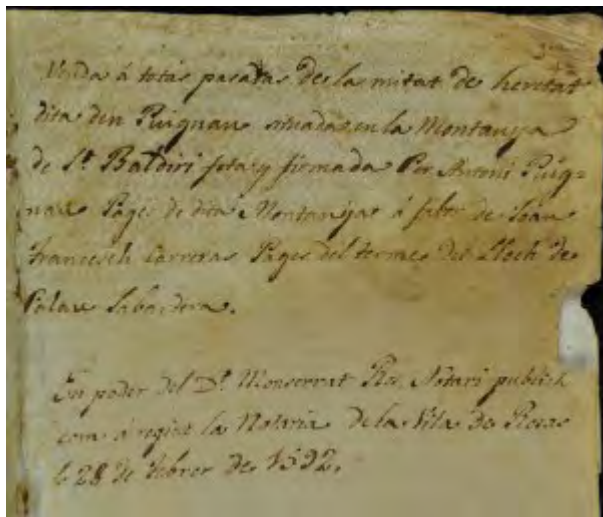 Venda á totas pasadas de la mitat de heretat
dita den Puignau situada en la Montanya
de St. Baldiri feta y firmada Per Antoni Puig=
nau Pages de dita Montanya á fabor de Joan
Francesch Carreras Pages del terme del Lloch de
Palau Sabardera.
En poder del Dr. Monserrat Notari publich
com á regint la Notaria de la Vila de Rosas
á 28 de febrer de 1592.